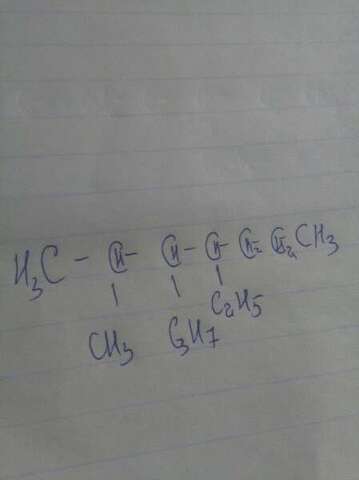 H₃C - CH - CH - CH - CH₂ CH₂ CH₃
CH₃ C₃H₇ C₂H₅